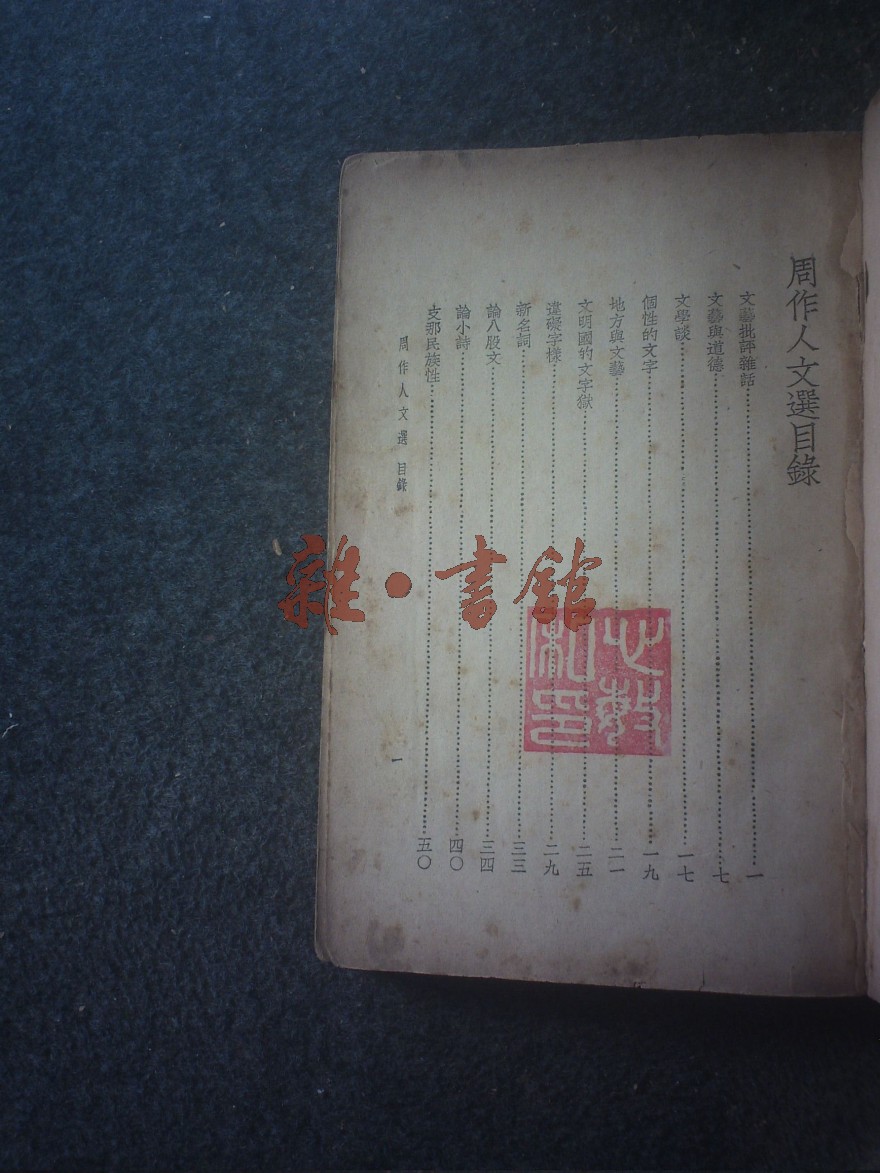 周作人文選目錄
文藝批評雜話……一
文藝與道德……七
文學談……一七
個性的文字……一九
地方與文藝……二一
文明國的文字獄……二五
違礙字樣……二九
新名詞……三三
論八股文……三四
論小詩……四〇
支那民族性……五〇
周作人文選 目錄
一
雜·書館
私印